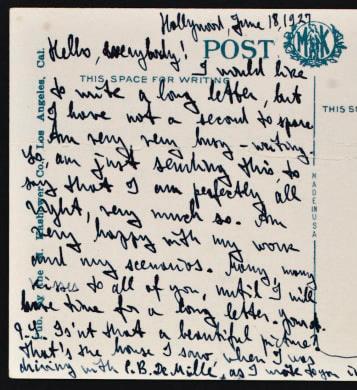 Hollywood, June 18, 1927
Hello, everybody!
POST
MK
THIS SPACE FOR WRITING
THIS S
I would like
to write a long letter, but
I have not a second to spare.
Am very, very busy – writing.
So am just sending this, to
say that I am perfectly all
right, very much so. Am
very happy with my work
and my scenarios. Many, many
kisses to all of you, until I will
have time for a long letter. yours
P.S. Isn't that a beautiful picture?
That's the house I saw, when I was
driving with C.B. De Mille, as I wrote to you i
Pub. by the M. Kashower Co., Los Angeles, Cal.
MADE IN USA